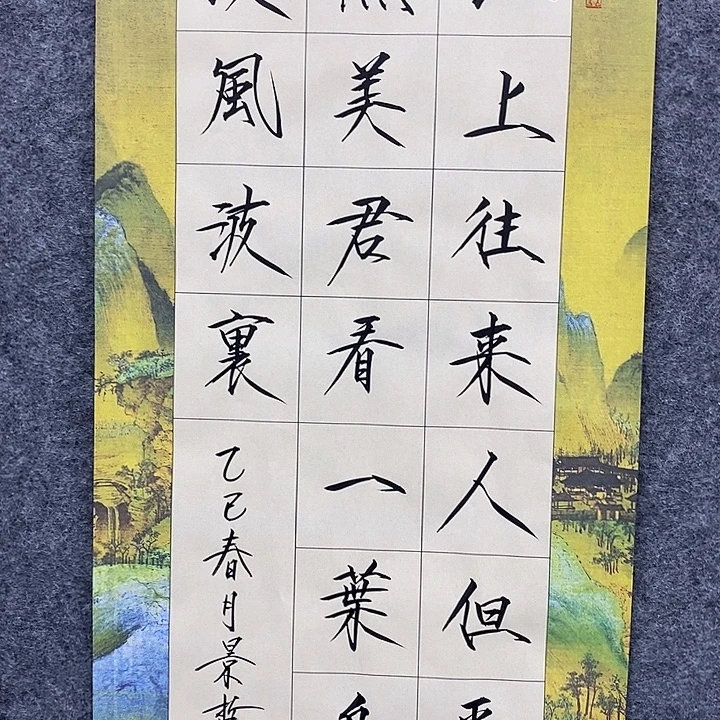 上往来人但
美君看一葉
風波裏
乙巳春月景